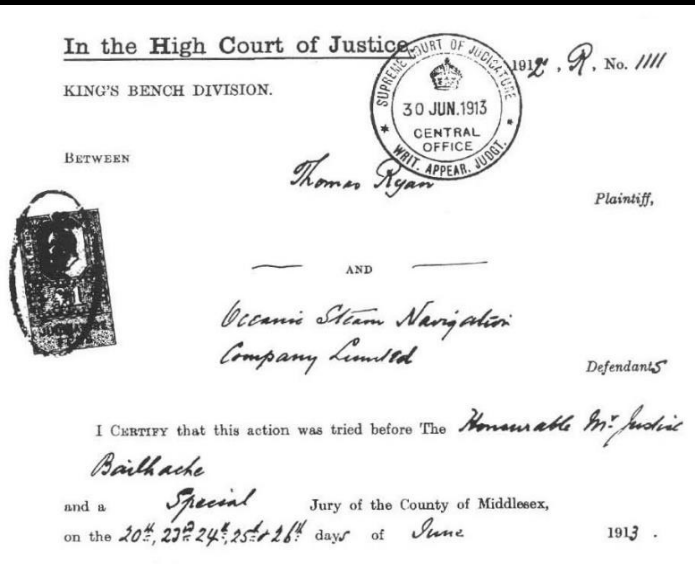 In the High Court of Justice
1912. R. No. 1111
KING'S BENCH DIVISION.
SUPREME COURT OF JUDICATURE
30 JUN.1913
CENTRAL
OFFICE
WRIT. APPEAR. JUDGT.
BETWEEN
Thomas Ryan
Plaintiff,
AND
Oceanic Steam Navigation
Company Limited
Defendants
I CERTIFY that this action was tried before The Honourable Mr. Justice
Bailhache
and a Special Jury of the County of Middlesex,
on the 20th, 23rd 24th, 25th & 26th days of June 1913.